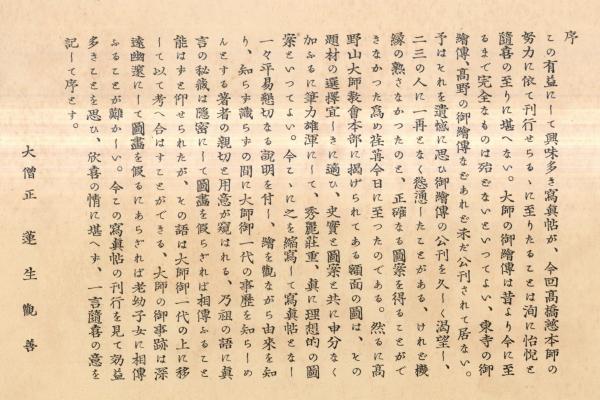 序
この有益にして興味多き寫眞帖が、今回高橋慈本師の
努力に依て刊行せらるゝに至りたることは洵に怡悅と
隨喜の至りに堪へない。大師の御繪傳は昔より今に至
るまで完全なものは殆どないといつてよい、東寺の御
繪傳、高野の御繪傳などあれど未だ公刊されて居ない。
予はそれを遺憾に思ひ御繪傳の公刊を久しく渴望し、
二三の人に一再となく慫慂したことがある、けれど機
緣の熟さなかつたのと、正確なる圖案を得ることがで
きなかつた爲め荏苒今日に至つたのである。然るに高
野山大師敎會本部に揭げられてある額面の圖は、その
題材の選擇宜しきに適ひ、史實と圖案と共に申分なく
加ふるに筆力雄渾にして、秀麗莊重、眞に理想的の圖
案といつてよい。今こゝに之を縮寫して寫眞帖となし
一々平易懇切なる說明を付し、繪を觀ながら由來を知
り、知らず識らずの間に大師御一代の事歷を知らしめ
んとする著者の親切と用意が窺はれる、乃祖の語に眞
言の秘藏は隱密にして圖畫を假らざれば相傳ふること
能はずと仰せられたが、その語は大師御一代の上に移
して以て考へ合はすことができる、大師の御事跡は深
遠幽邃にして圖畫を假るにあらざれば老幼子女に相傳
ふることが難かしい。今この寫眞帖の刊行を見て効益
多きことを思ひ、欣喜の情に堪へず、一言隨喜の意を
記して序とす。
大僧正 蓮生觀善